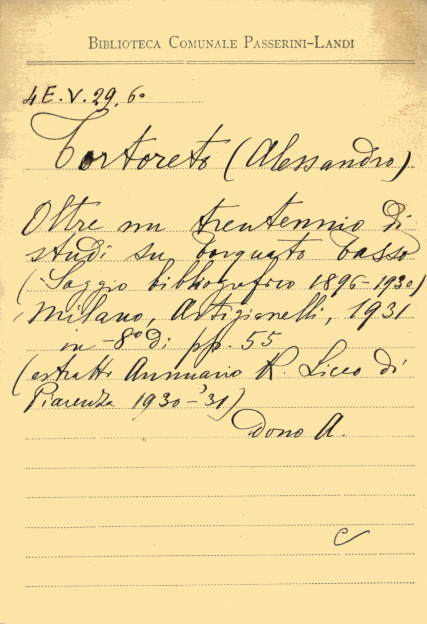 BIBLIOTECA COMUNALE PASSERINI-LANDI
4E.V.29.6°
Tortoreto (Alessandro)
Oltre un trentennio di
studi su Torquato Tasso
(Saggio bibliografico 1896-1930)
Milano, Artigianelli, 1931
in-8° di pp. 55
(estratti Annuario R. Liceo di
Piacenza 1930-'31)
Dono A.
c